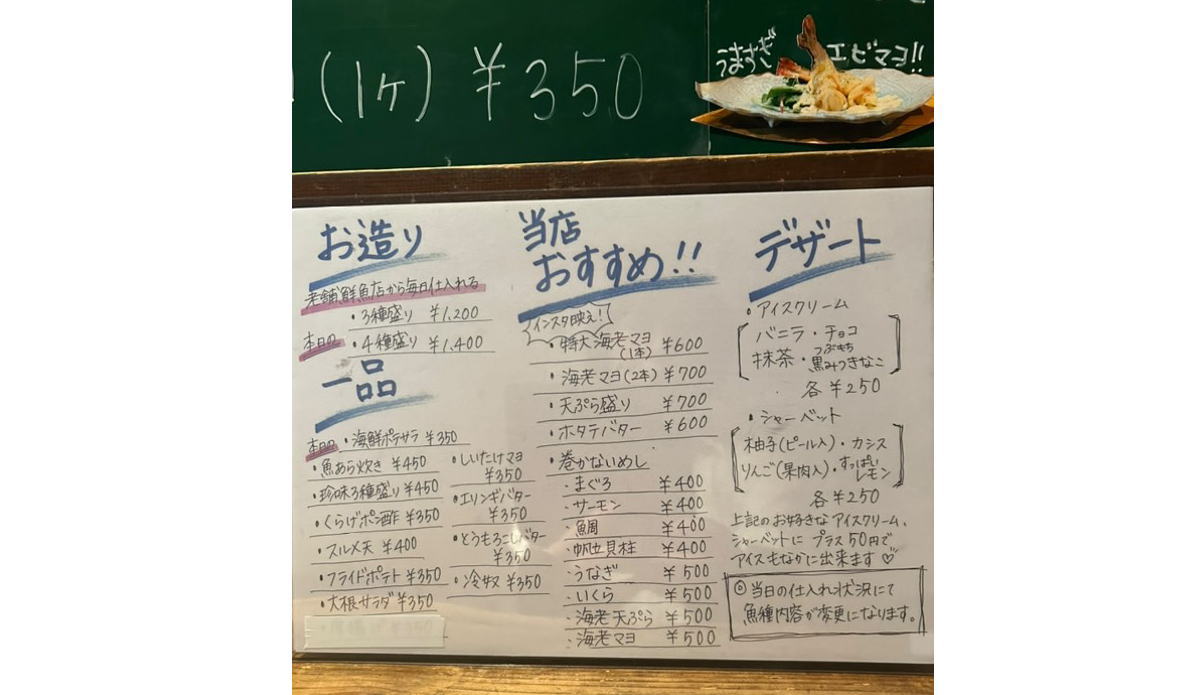 (1ヶ) ¥350
うますぎ エビマヨ!!
お造り
老舗鮮魚店から毎日仕入れる
・3種盛り ¥1,200
本日の ・4種盛り ¥1,400
一品
本日の ・海鮮ポテサラ ¥350
・魚あら炊き ¥450
・珍味3種盛り ¥450
・くらげポン酢 ¥350
・スルメ天 ¥400
・フライドポテト ¥350
・大根サラダ ¥350
・しいたけマヨ
¥350
・エリンギバター
¥350
・とうもろこしバター
¥350
・冷奴 ¥350
当店
おすすめ!!
インスタ映え!
・特大海老マヨ ¥600
(1本)
・海老マヨ(2本) ¥700
・天ぷら盛り ¥700
・ホタテバター ¥600
・巻かないめし
・まぐろ ¥400
・サーモン ¥400
・鯛 ¥400
・帆立貝柱 ¥400
・うなぎ ¥500
・いくら ¥500
・海老天ぷら ¥500
・海老マヨ ¥500
デザート
・アイスクリーム
バニラ・チョコ
抹茶・つぶもち黒みつきなこ
各¥250
・シャーベット
柚子(ピール入)・カシス
りんご(果肉入)・すっぱいレモン
各¥250
上記のお好きなアイスクリーム、
シャーベットに プラス50円で
アイスもなかに出来ます♡
◎当日の仕入れ状況にて
魚種内容が変更になります。